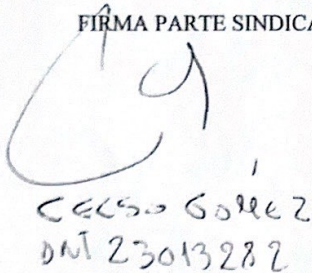 FIRMA PARTE SINDICA
CELSO GOMEZ
DNI 23013282